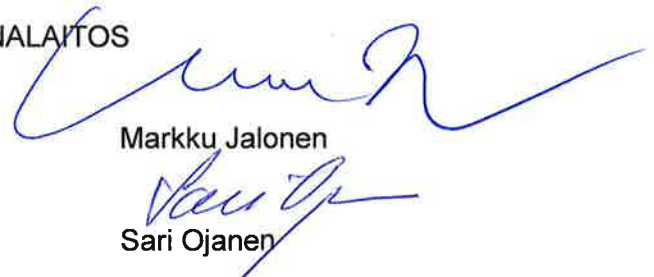 NALAITOS
Markku Jalonen
Sari Ojanen